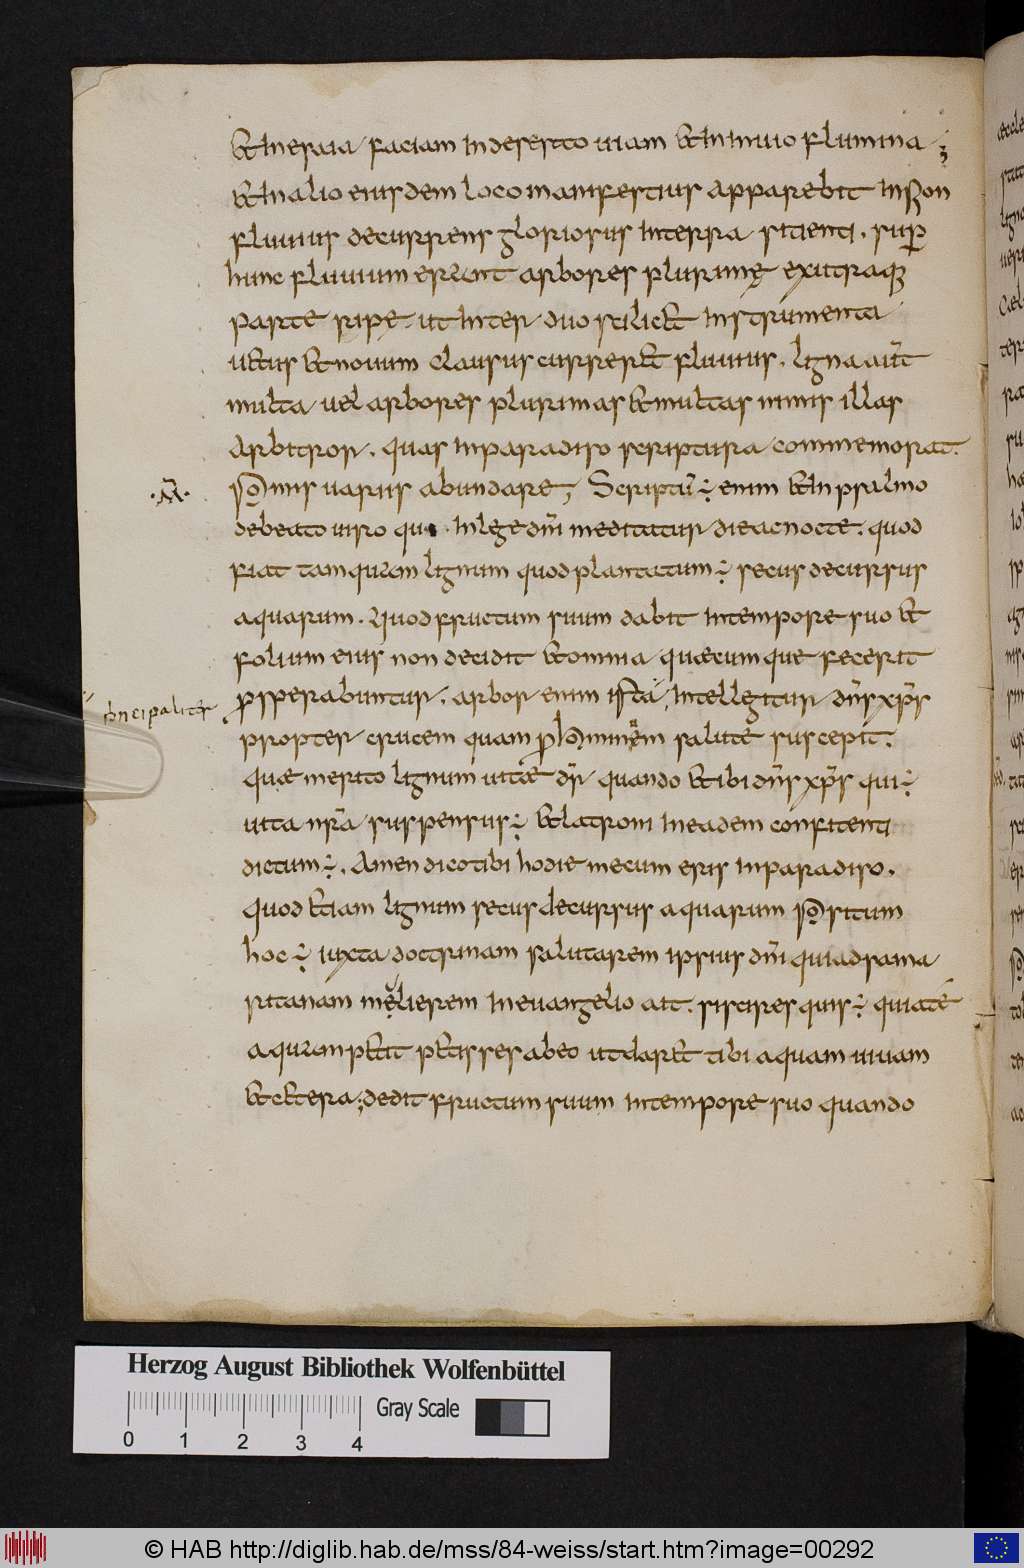 & in esaia faciam in deserto uiam & in inuio flumina;
& in alio eiusdem loco manifestius apparebit in sion
fluuius decurrens gloriosus in terra sitienti. sup̄
hunc fluuium erunt arbores plurimę ex utraq;
parte ripe. ut inter duo scilic& instrumenta
u&us & nouum clausus currer& fluuius. ligna aut̄
multa uel arbores plurimas & multas nimis illas
arbitror. quas in paradiso scriptura commemorat.
pomis uariis abundare; Scriptū ÷ enim & in psalmo
de beato uiro qui in lege dn̄i meditatur die ac nocte. quod
fiat tamquam lignum quod plantatum ÷ secus decursus
aquarum. Quod fructum suum dabit in tempore suo &
folium eius non decidit & omnia quæcumque fecerit
prsperabuntur. arbor enim ista intellegitur dn̄s xp̄s
principalit̄
propter crucem quam p̄ hominem salute suscepit.
Quæ merito lignum uitæ dr̄ quando & ibi dn̄s xp̄s qui ÷
uita nr̄a suspensus ÷ & latroni in ea dem confitenti
dictum ÷. Amen dico tibi hodie mecum eris in paradiso.
Quod &iam lignum secus decursus aquarum positum
hoc ÷ iuxta doctrinam salutarem ipsius dn̄i qui ad sama
ritanam mulierem in euangelio ait. si scires quis ÷ qui a te
aquam p&it p&isses ab eo ut dar& tibi aquam uiuam
& c&era; dedit fructum suum in tempore suo quando
Herzog August Bibliothek Wolfenbüttel
Gray Scale
0 1 2 3 4
© HAB http://diglib.hab.de/mss/84-weiss/start.htm?image=00292